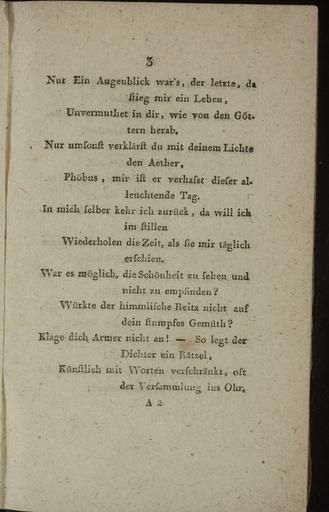 3
Nur Ein Augenblick war's, der letzte, da
ſtieg mir ein Leben,
Unvermuthet in dir, wie von den Göt-
tern herab.
Nur umſonſt verklärſt du mit deinem Lichte
den Aether,
Phöbus, mir iſt er verhaſst dieſer al-
leuchtende Tag.
In mich ſelber kehr ich zurück, da will ich
im ſtillen
Wiederholen die Zeit, als ſie mir täglich
erſchien.
War es möglich, die Schönheit zu ſehen und
nicht zu empfinden?
Würkte der himmliſche Reitz nicht auf
dein ſtumpfes Gemüth?
Klage dich Armer nicht an! — So legt der
Dichter ein Rätzel,
Künſtlich mit Worten verſchränkt, oft
der Verſammlung ins Ohr.
A 2